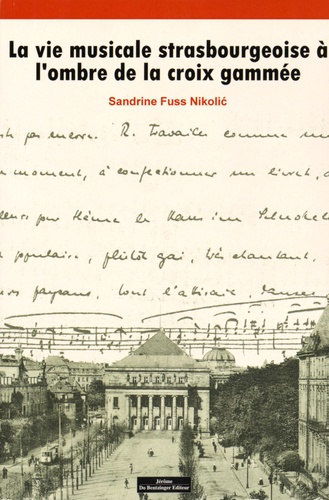 La vie musicale strasbourgeoise à
l'ombre de la croix gammée
Sandrine Fuss Nikolić
pas encore. R. Travaille comme
moment, à confectionner un livret, d
pour Hans im Schnokeloch
populaire, plutôt gai, très chantant.
paysans, tout l'attirait, danses
Jérôme
Do Bentzinger Editeur